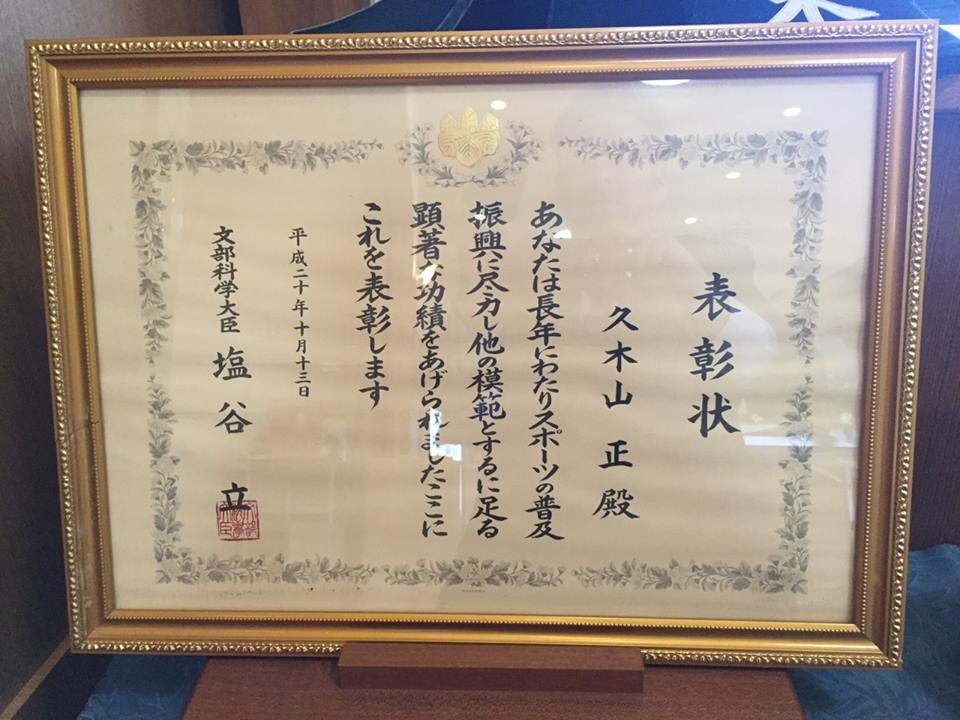 表彰状
久木山 正 殿
あなたは長年にわたりスポーツの普及
振興に尽力し他の模範とするに足る
顕著な功績をあげられましたここに
これを表彰します
平成二十年十月十三日
文部科学大臣 塩谷 立